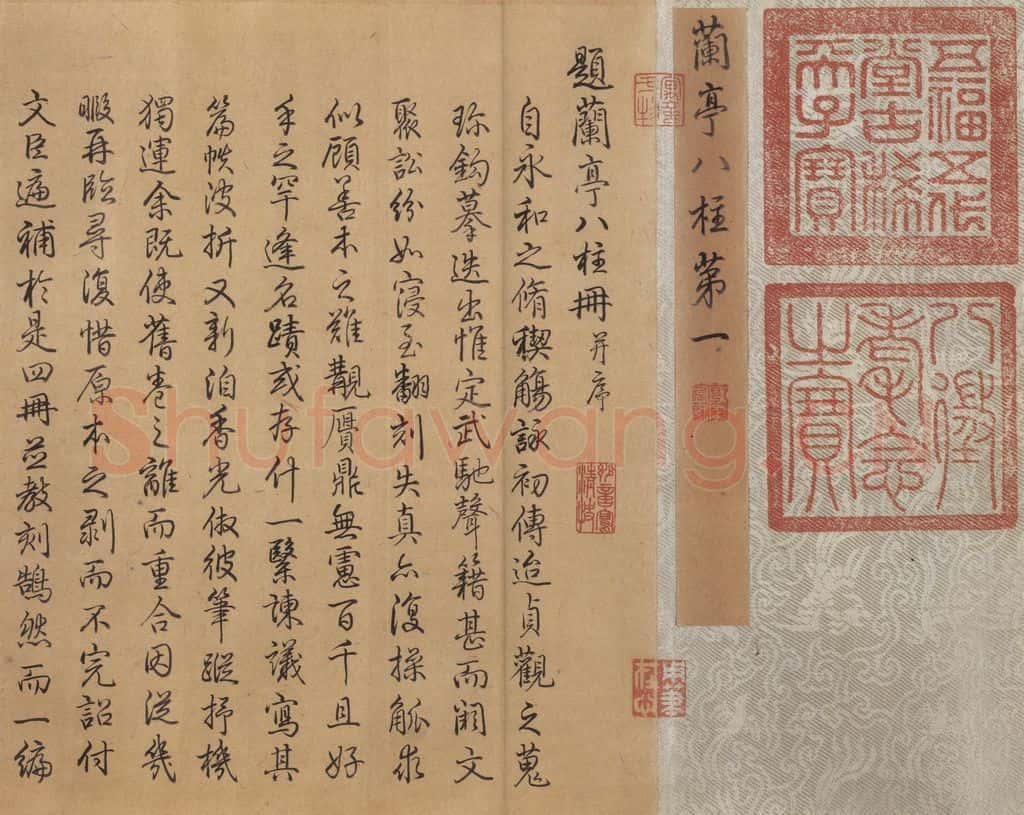 五福五代
堂古稀
天子寶
八徵
耄念
之寶
蘭亭八柱第一
題蘭亭八柱冊 并序
自永和之脩稧觴詠初傳迨貞觀之蒐
珎鉤摹迭出惟定武馳聲籍甚而闕文
聚訟紛如寖至翻刻失真亦復操觚求
似顧善本之難覯贗鼎無慮百千且好
手之罕逢名蹟或存什一繄諫議寫其
篇帙波折又新洎香光倣彼筆蹤抒機
獨運余既使舊卷之離而重合因從幾
暇再臨尋復惜原本之剥而不完詔付
文臣遍補於是四冊並教刻鵠然而一編
Shufawang